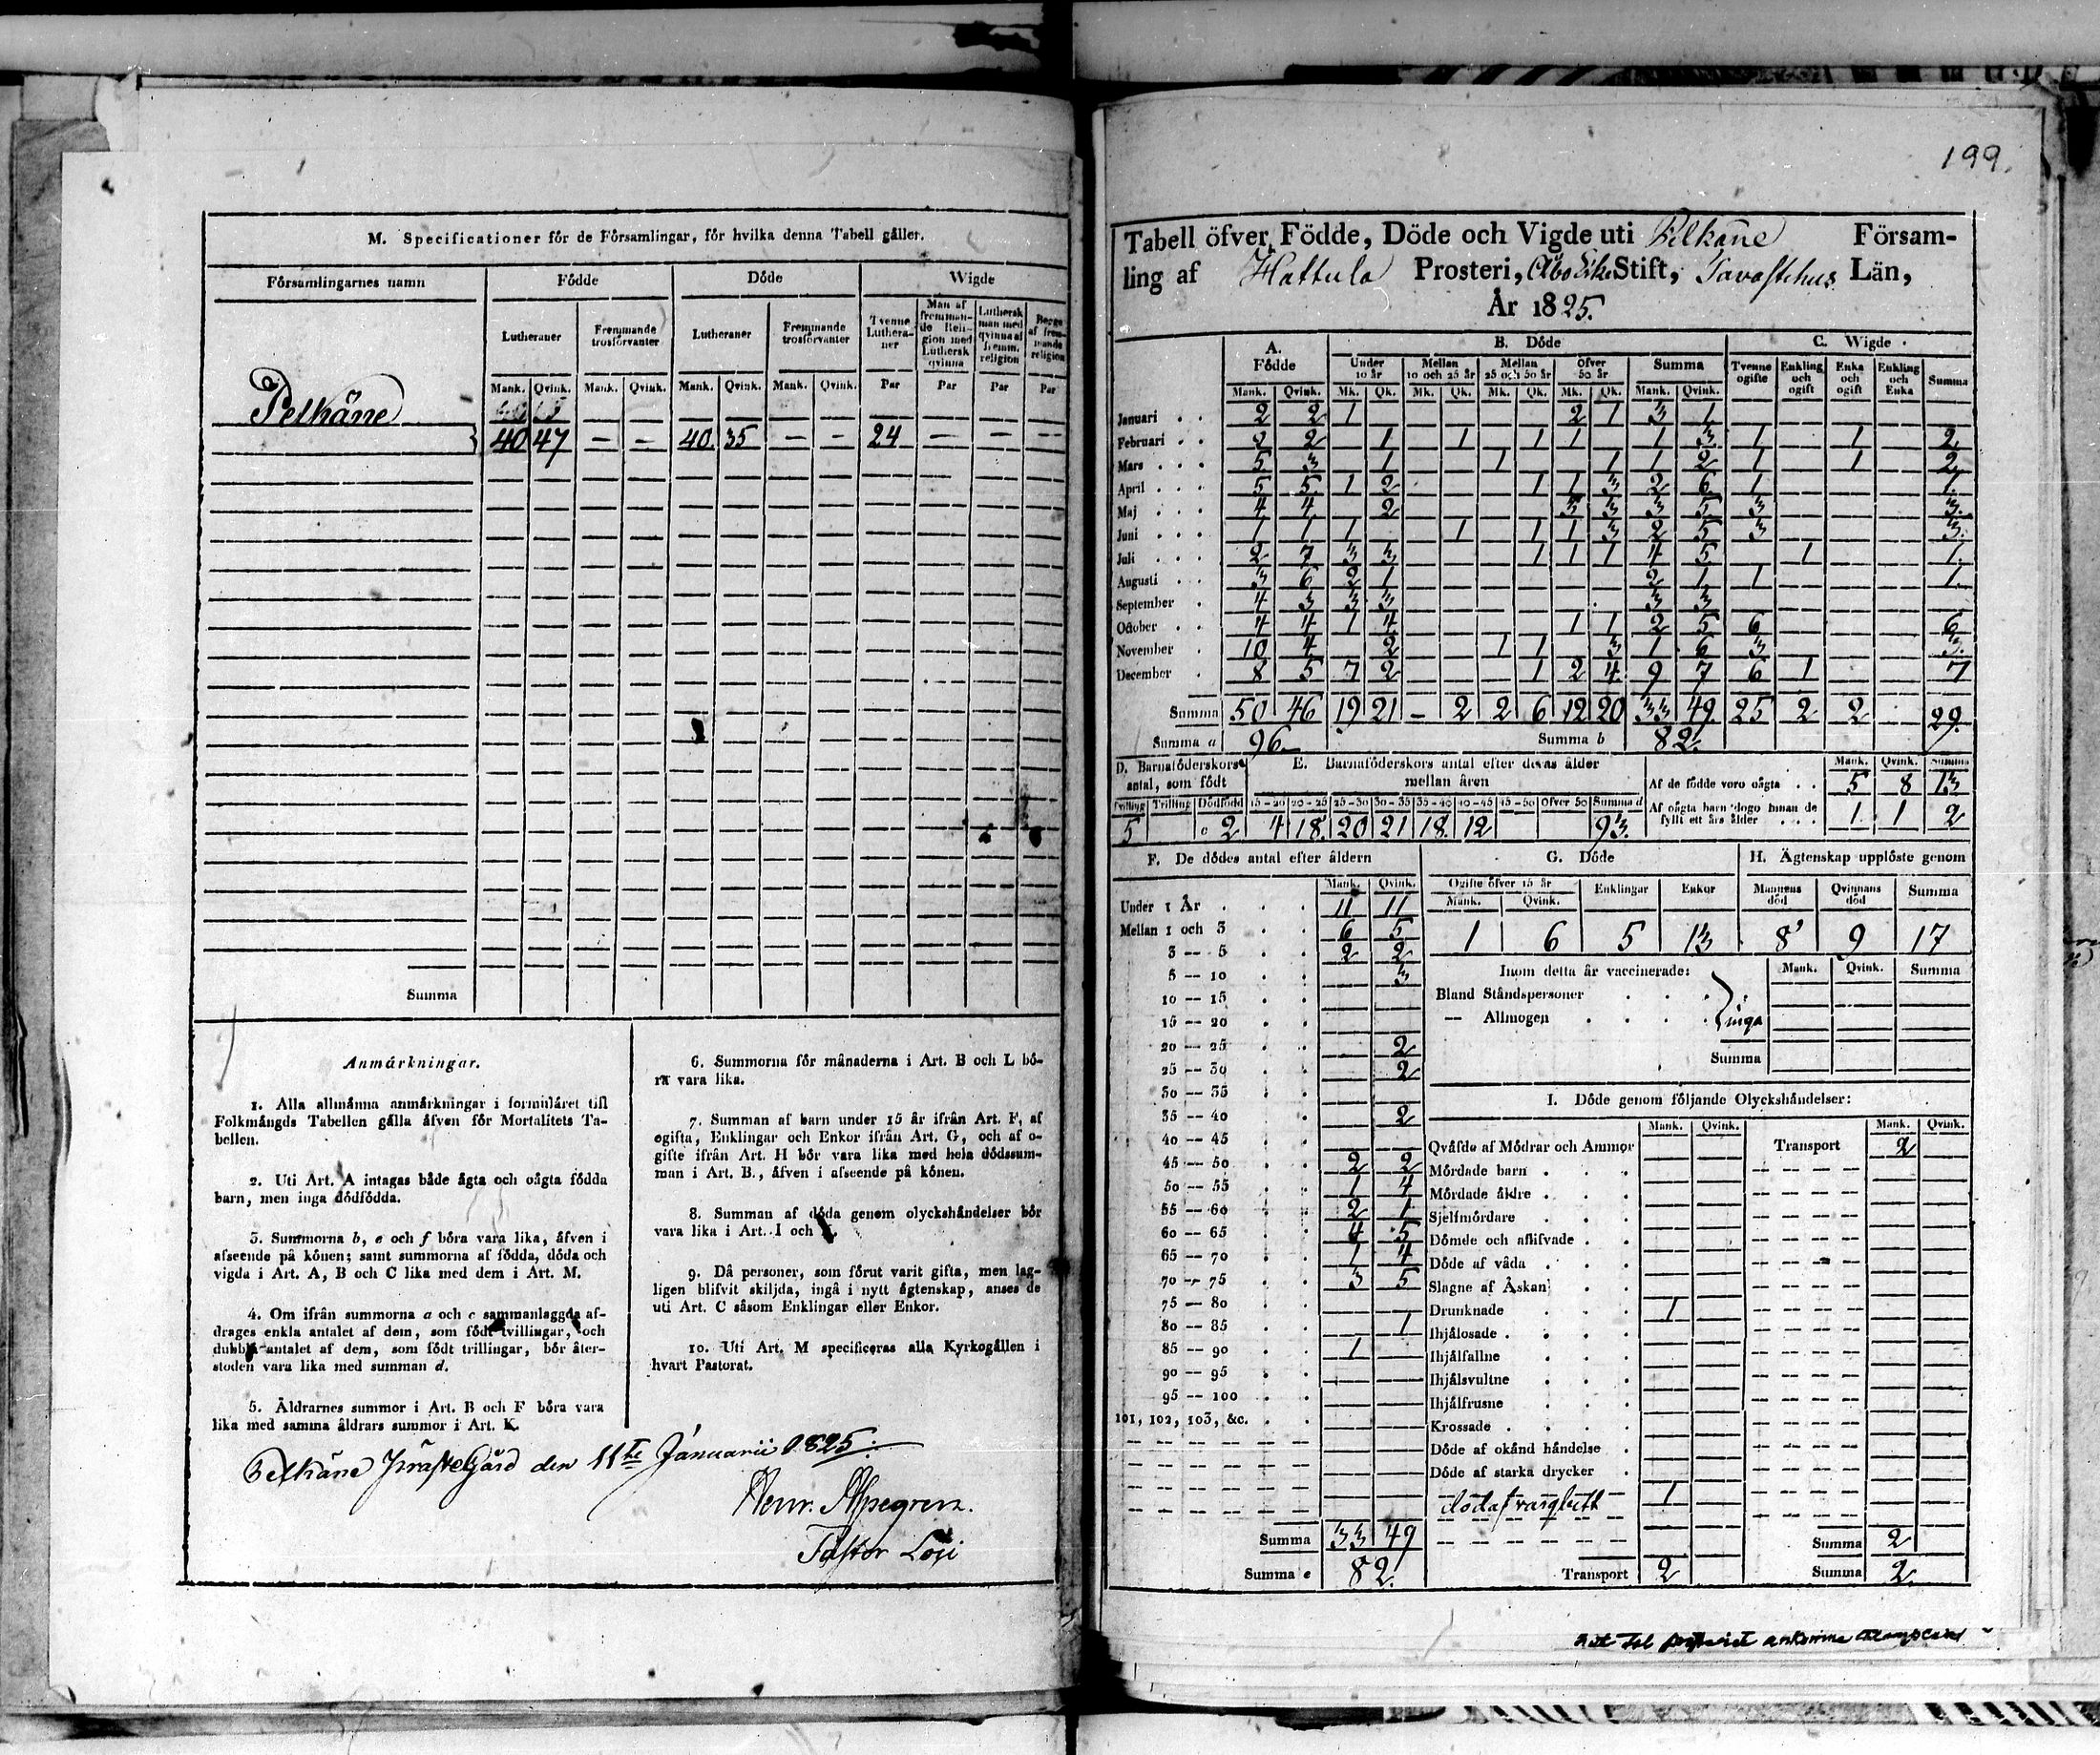 M. Specificationer för de Församlingar, för hvilka denna Tabell gäller.
Församlingarnes namn | Födde | Döde | Wigde
Lutheraner | Fremmande trosförvanter | Lutheraner | Fremmande trosförvanter | Tvenne Lutheraner | Man af fremmande Religion med Luthersk qvinna | Luthersk man med qvinna af fremm. religion | Begge af fremmande religion
Mank. | Qvink. | Mank. | Qvink. | Mank. | Qvink. | Mank. | Qvink. | Par | Par | Par | Par
Pelkäne
40 | 47 | — | — | 40 | 35 | — | — | 24 | — | — | —
Summa
Anmärkningar.
1. Alla allmänna anmärkningar i formuläret till
Folkmängds Tabellen gälla äfven för Mortalitets Ta-
bellen.
2. Uti Art. A intagas både ägta och oägta födda
barn, men inga dödfödda.
3. Summorna b, e och f böra vara lika, äfven i
afseende på könen; samt summorna af födda, döda och
vigda i Art. A, B och C lika med dem i Art. M.
4. Om ifrån summorna a och c sammanlaggda af-
drages enkla antalet af dem, som födt tvillingar, och
dubbla antalet af dem, som födt trillingar, bör åter-
stoden vara lika med summan d.
5. Äldrarnes summor i Art. B och F böra vara
lika med samma äldrars summor i Art. K.
6. Summorna för månaderna i Art. B och L bö-
ra vara lika.
7. Summan af barn under 15 år ifrån Art. F, af
ogifta, Enklingar och Enkor ifrån Art. G, och af o-
gifte ifrån Art. H bör vara lika med hela dödssum-
man i Art. B., äfven i afseende på könen.
8. Summan af döda genom olyckshändelser bör
vara lika i Art. I och
9. Då personer, som förut varit gifta, men lag-
ligen blifvit skiljda, ingå i nytt ägtenskap, anses de
uti Art. C såsom Enklingar eller Enkor.
10. Uti Art. M specificeras alla Kyrkogällen i
hvart Pastorat.
Pelkäne PrästeGård den 11te Januarii 1825.
Henr. Alpegren.
Pastor Loji
199.
Tabell öfver Födde, Döde och Vigde uti Pelkäne Försam-
ling af Hattula Prosteri, Åbo Erke Stift, Tavastehus Län,
År 1825.
A. Födde | B. Döde | C. Wigde
Under 10 år | Mellan 10 och 25 år | Mellan 25 och 50 år | Öfver 50 år | Summa | Tvenne ogifte | Enkling och ogift | Enka och ogift | Enkling och Enka | Summa
Mank. | Qvink. | Mk. | Qk. | Mk. | Qk. | Mk. | Qk. | Mk. | Qk. | Mank. | Qvink.
Januari 2 2 1 2 1 3 1
Februari 2 2 1 1 1 1 1 3 1 1 2
Mars 5 3 1 1 1 1 2 1 1 2
April 5 5 1 2 1 1 3 2 6 1 1
Maj 4 4 2 3 3 3 5 3 3
Juni 1 1 1 1 1 1 3 2 5 3 3
Juli 2 7 3 3 1 1 1 4 5 1 1
Augusti 3 6 2 1 2 1 1 1
September 4 3 3 3 3 3
October 4 4 1 4 1 1 2 5 6 6
November 10 4 2 1 1 3 1 6 3 3
December 8 5 7 2 1 2 4 9 7 6 1 7
Summa 50 46 19 21 — 2 2 6 12 20 33 49 25 2 2 29
Summa a 96 Summa b 82
D. Barnaföderskors antal, som födt
Tvilling | Trilling | Dödfödd
5 | | 2
E. Barnaföderskors antal efter deras ålder mellan åren
15-20 | 20-25 | 25-30 | 30-35 | 35-40 | 40-45 | 45-50 | Öfver 50 | Summa d
4 | 18 | 20 | 21 | 18 | 12 | | | 93
Mank. | Qvink. | Summa
Af de födde voro oägta 5 8 13
Af oägta barn dogo innan de fyllt ett års ålder 1 1 2
F. De dödes antal efter åldern
Mank. Qvink.
Under 1 År 11 11
Mellan 1 och 3 6 5
3 — 5 2 2
5 — 10 3
10 — 15
15 — 20
20 — 25 2
25 — 30 2
30 — 35
35 — 40 2
40 — 45
45 — 50 2 2
50 — 55 1 4
55 — 60 2 1
60 — 65 4 5
65 — 70 1 4
70 — 75 3 5
75 — 80
80 — 85 1
85 — 90 1
90 — 95
95 — 100
101, 102, 103, &c.
Summa 33 49
Summa e 82.
G. Döde
Ogifte öfver 15 år | Enklingar | Enkor
Mank. | Qvink.
1 | 6 | 5 | 13
H. Ägtenskap upplöste genom
Mannens död | Qvinnans död | Summa
8 | 9 | 17
Inom detta år vaccinerade: Mank. Qvink. Summa
Bland Ståndspersoner
— Allmogen inga
Summa
I. Döde genom följande Olyckshändelser:
Mank. Qvink. Mank. Qvink.
Qväfde af Mödrar och Ammor Transport 2
Mördade barn
Mördade äldre
Sjelfmördare
Dömde och aflifvade
Döde af våda
Slagne af Åskan
Drunknade 1
Ihjälosade
Ihjälfallne
Ihjälsvultne
Ihjälfrusne
Krossade
Döde af okänd händelse
Döde af starka drycker
döda f vargbett 1
Summa 2
Transport 2 Summa 2.